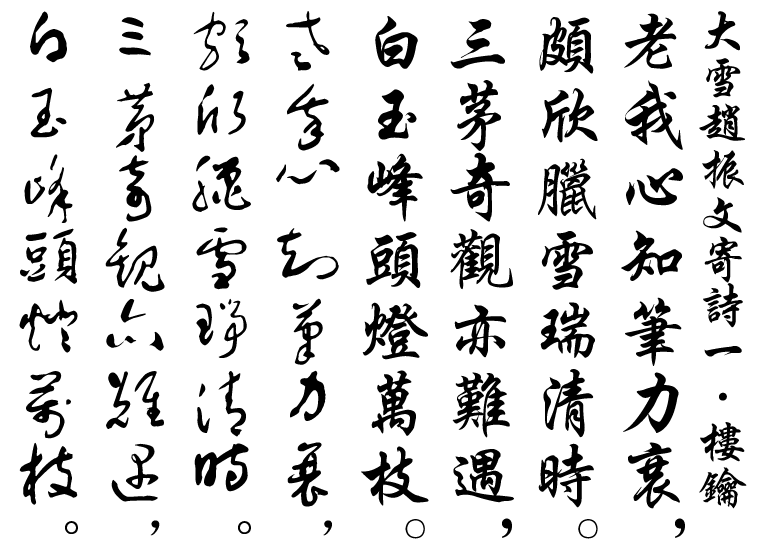 大雪趙振文寄詩一·樓鑰
老我心知筆力衰，
頗欣臘雪瑞清時。
三茅奇觀亦難遇，
白玉峰頭燈萬枝。
老我心知筆力衰，
頗欣臘雪瑞清時。
三茅奇觀亦難遇，
白玉峰頭燈萬枝。